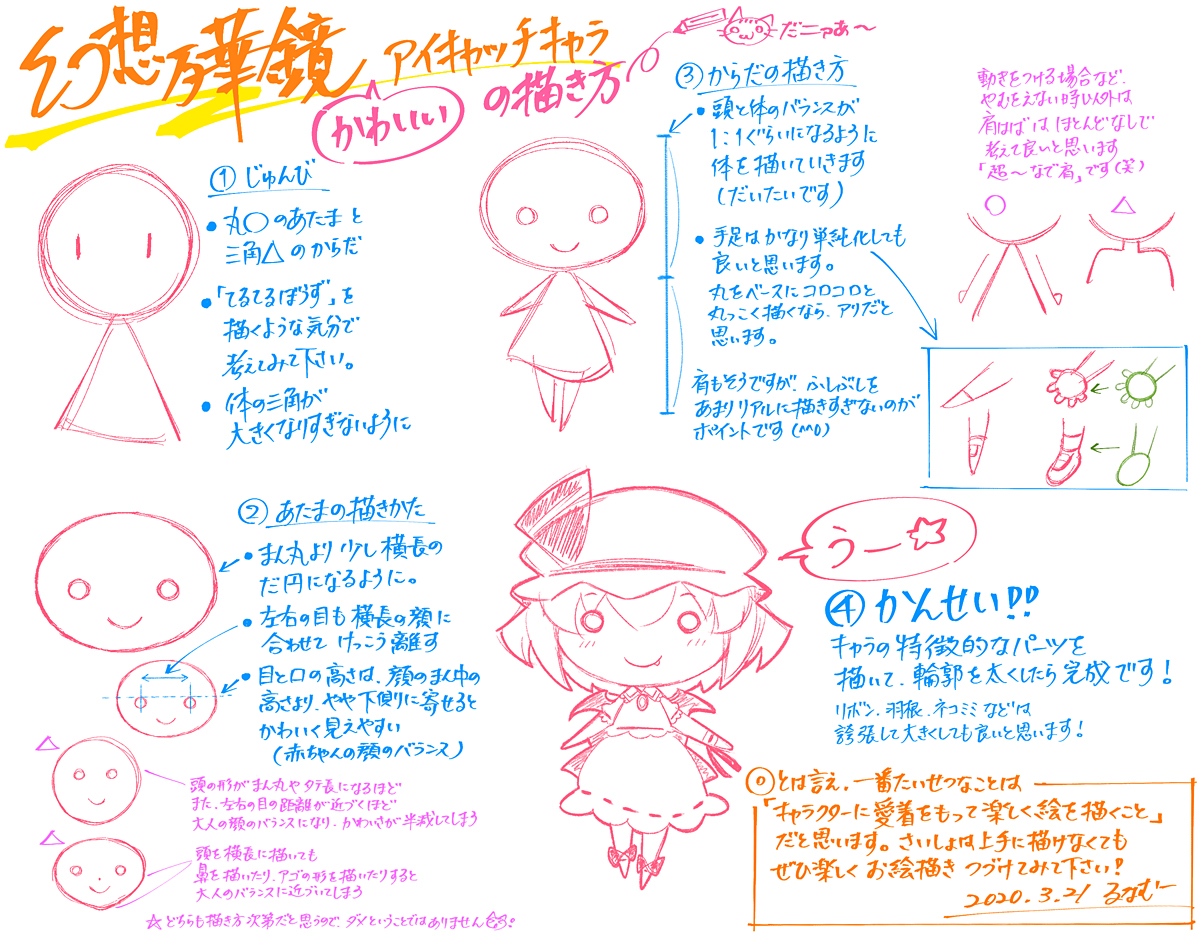 幻想万華鏡 アイキャッチキャラ
かわいい の描き方
だニァあ〜
① じゅんび
・丸○のあたまと
三角△のからだ
・「てるてるぼうず」を
描くような気分で
考えてみて下さい。
・体の三角が
大きくなりすぎないように
② あたまの描きかた
・まん丸より少し横長の
だ円になるように。
・左右の目も横長の顔に
合わせて けっこう離す
・目と口の高さは、顔のまん中の
高さより、やや下側に寄せると
かわいく見えやすい
(赤ちゃんの顔のバランス)
△
頭の形がまん丸やタテ長になるほど
また、左右の目の距離が近づくほど
大人の顔のバランスになり、かわいさが半減してしまう
△
頭を横長に描いても
鼻を描いたり、アゴの形を描いたりすると
大人のバランスに近づいてしまう
☆どちらも描き方次第だと思うので、ダメということではありません
③ からだの描き方
・頭と体のバランスが
1:1ぐらいになるように
体を描いていきます
(だいたいです)
・手足はかなり単純化しても
良いと思います。
丸をベースにコロコロと
丸っこく描くなら、アリだと
思います。
肩もそうですが、ふしぶしを
あまりリアルに描きすぎないのが
ポイントです(^^0)
動きをつける場合など、
やむをえない時以外は
肩はばは ほとんどなしで
考えて良いと思います
「超〜なで肩」です(笑)
○ △
うー☆
④ かんせい!!
キャラの特徴的なパーツを
描いて、輪郭を太くしたら完成です!
リボン、羽根、ネコミミなどは
誇張して大きくしても良いと思います!
◎とは言え、一番たいせつなことは
「キャラクターに愛着をもって楽しく絵を描くこと」
だと思います。さいしょは上手に描けなくても
ぜひ楽しく お絵描き つづけてみて下さい!
2020.3.21 るなむー